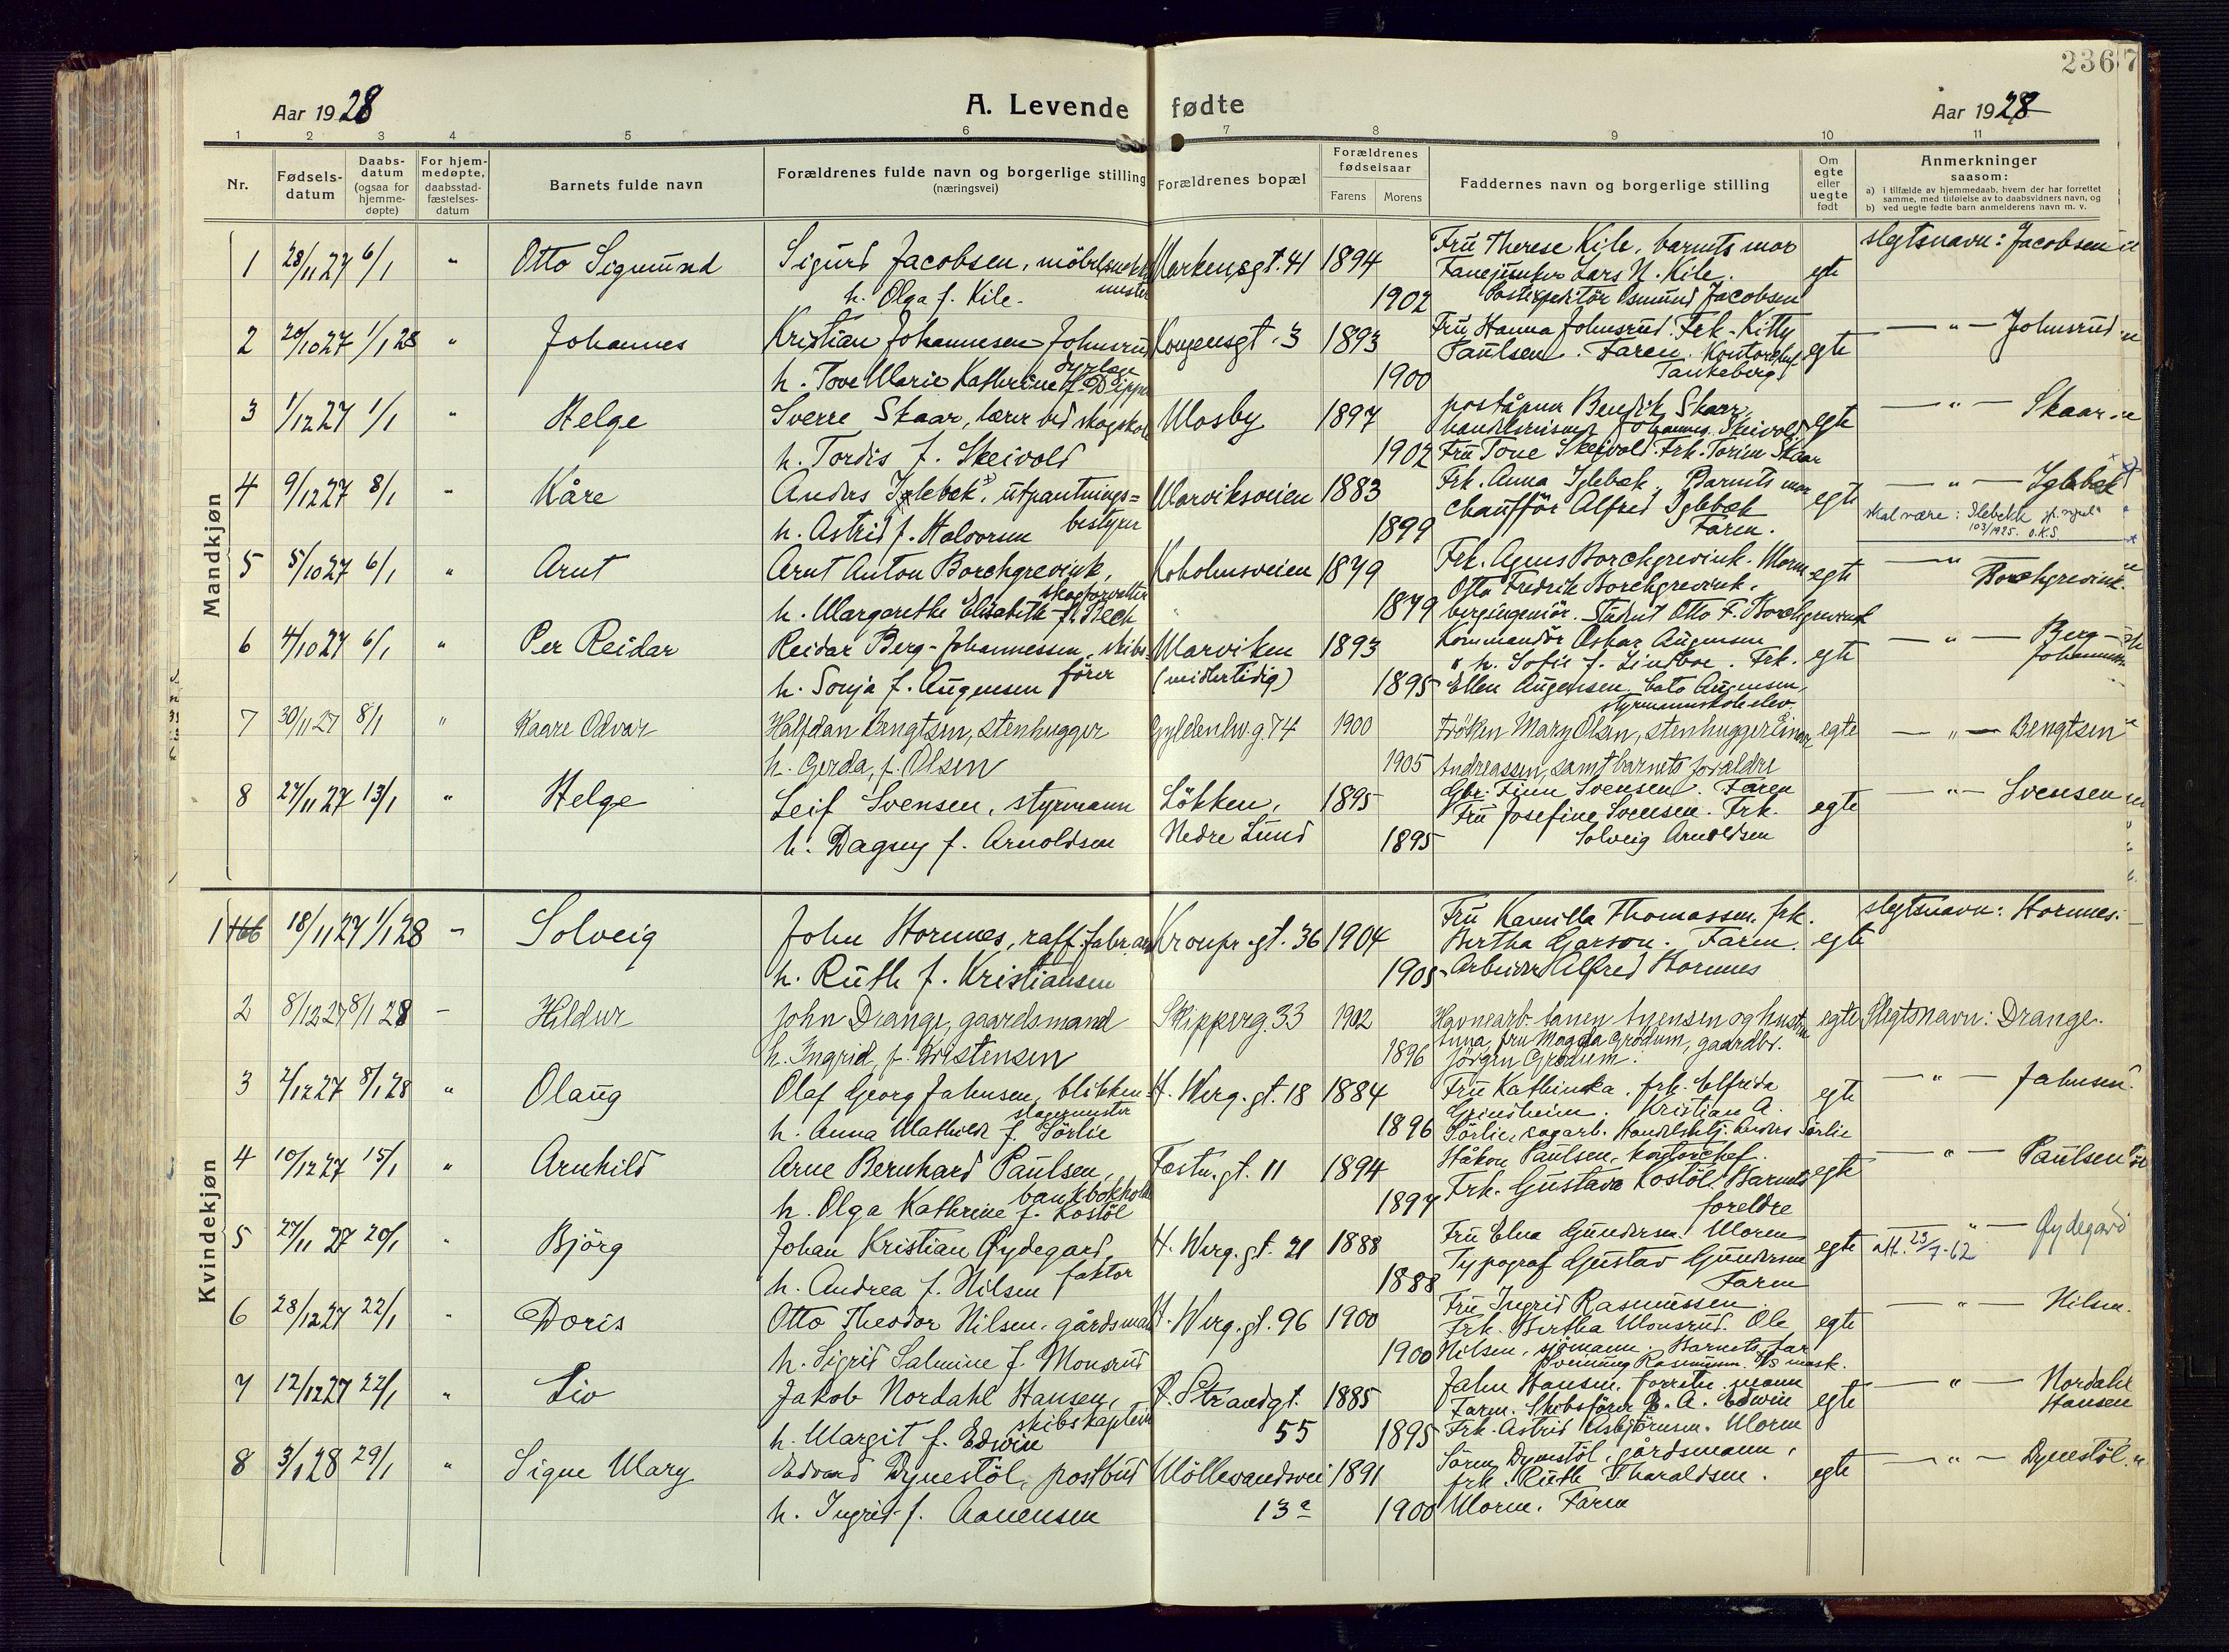 236 7
Aar 1928
A. Levende fødte
Aar 1928
1 2 3 4 5 6 7 8 9 10 11
Nr.
Fødsels-datum
Daabs-datum (ogsaa for hjemme-døpte)
For hjem-medøpte, daabsstad-fæstelses-datum
Barnets fulde navn
Forældrenes fulde navn og borgerlige stilling (næringsvei)
Forældrenes bopæl
Forældrenes fødselsaar
Farens Morens
Faddernes navn og borgerlige stilling
Om egte eller uegte født
Anmerkninger saasom:
a) i tilfælde av hjemmedaab, hvem der har forrettet samme, med tilføielse av to daabsvidners navn, og
b) ved uegte fødte barn anmelderens navn m. v.
Mandkjøn
1 28/11 27 6/1 " Otto Sigmund Sigurd Jacobsen, möbelsnekkermester Markensgt. 41 1894 Fru Therese Kile, barnets mor egte slegtsnavn: Jacobsen
h. Olga f. Kile. 1902 Fanejunker Lars N. Kile.
Postexpeditör Osmund Jacobsen
2 20/10 27 1/1 28 " Johannes Kristian Johannesen Johnsrud Kongensgt. 3 1893 Fru Hanna Johnsrud. Frk. Kitty egte — " — Johnsrud
dyrlæge Paulsen. Faren. Kontorchef
h. Tove Marie Kathrine f. 1900 Tankeberg
3 1/12 27 1/1 " Helge Sverre Skaar, lærer ved skogskole Mosby 1897 poståpner Bendik Skaar, egte — " — Skaar
handelsreisende Johannes Skeivold
h. Tordis f. Skeivold 1902 Fru Tone Skeivold. Frk. Torine Skaar
4 9/12 27 8/1 " Kåre Anders Iglebæk, utpantnings= Marviksveien 1883 Frk. Anna Iglebæk. Barnets mor egte — " — Iglebæk
bestyrer chaufför Alfred Iglebæk skal være: Ilebekk
h. Astrid f. Halvorsen 1899 Faren. 103/1925. O.K.S.
5 5/10 27 6/1 " Arnt Arnt Anton Borchgrevink, Koholmsveien 1879 Frk. Agnes Borchgrevink. Moren egte — " — Borchgrevink.
skogforvalter Otto Fredrik Borchgrevink.
h. Margarethe Elisabeth f. Bech " 1879 bergingeniör. Student Otto F. Borchgrevink
6 4/10 27 6/1 " Per Reidar Reidar Berg-Johannessen, skibs= Marviken 1893 Kommandör Oskar Augensen egte — " — Berg-Johannessen
förer (midlertidig) " h. Sofie f. Lindboe. Frk.
h. Sonja f. Augensen 1895 Ellen Augensen. Cato Augensen,
styrmannskoleelev
7 30/11 27 8/1 " Kaare Odvar Halfdan Bengtsen, stenhugger Gyldenløv.g. 74 1900 Frøken Mary Olsen, stenhugger Einar egte — " — Bengtsen
h. Gerda, f. Olsen 1905 Andreassen, samt barnets forældre
8 27/11 27 13/1 " Helge Leif Svensen, styrmann Lökken, 1895 Gbr. Finn Svensen. Faren egte — " — Svensen
Nedre Lund Fru Josefine Svensen. Frk.
h. Dagny f. Arnoldsen 1895 Solveig Arnoldsen
Kvindekjøn
1 166 18/11 27 1/1 28 " Solveig John Hornnes, raff. fabr. arb. Kronpr. gt. 36 1904 Fru Kamilla Thomassen, frk. egte slegtsnavn: Hornnes.
Bertha Garson. Faren.
h. Ruth f. Kristiansen 1905 Arbeider Alfred Hornnes
2 8/12 27 8/1 28 - Hildur John Drange, gaardsmand Skipperg. 33 1902 Havnearb. og hustru egte Slegtsnavn: Drange.
Anna, fru Magda Grødum, gaardbr.
h. Ingrid, f. Kristensen 1896 Jørgen Grødum.
3 2/12 27 8/1 28 " Olaug Olaf Georg Jahnsen, blikken- H. Werg. gt. 18 1884 Fru Kathinka. frk. Elfrida egte — " — Jahnsen.
slagermester Grindheim. Kristian A.
h. Anna Mathilde f. Sörlie 1896 Sörlie, sagarb. Handelsbtj. Anders Sörlie
4 10/12 27 15/1 " Arnhild Arne Bernhard Paulsen, Festn. gt. 11 1894 Håkon Paulsen, kontorchef. egte — " — Paulsen
bankbokholder Frk. Gustava Kostöl. Barnets
h. Olga Kathrine f. Kostöl 1897 foreldre
5 27/11 27 20/1 " Björg Johan Kristian Øydegard, H. Werg. gt. 21 1888 Fru Elna Gundersen. Moren egte — " — Øydegard
faktor Typograf Gustav Gundersen att. 23/7-62
h. Andrea f. Nilsen 1888 Faren
6 28/12 27 22/1 " Doris Otto Theodor Nilsen, gårdsmann H. Werg. gt. 96 1900 Fru Ingrid Rasmussen. egte — " — Nilsen.
Frk. Bertha Monsrud. Ole
h. Sigrid Salmine f. Monsrud 1900 Nilsen, sjömann. Barnets far
Rasmussen. mask.
7 12/12 27 22/1 " Liv Jakob Nordahl Hansen, Ö. Strandgt. 1885 Jahn Hansen. forretn. mann egte — " — Nordahl Hansen
skibskaptein 55 Faren. Skibsförer E. A. Edwin
h. Margit f. Edwin 1895 Frk. Astrid Asbjörnsen. Moren
8 3/1 28 29/1 " Signe Mary Edvard Dynestöl, postbud Möllevandsvei 1891 Sören Dynestöl, gårdsmann, egte — " — Dynestöl.
13a frk. Ruth Tharaldsen.
h. Ingrid f. Aanensen 1900 Moren. Faren